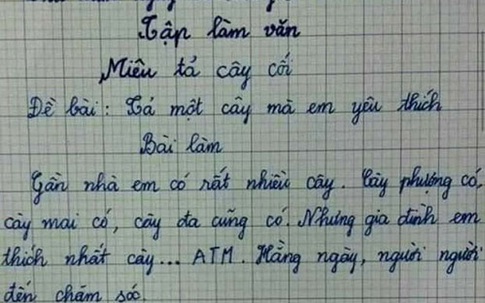 Tập làm văn
Miêu tả cây cối
Đề bài: Tả một cây mà em yêu thích
Bài làm
Gần nhà em có rất nhiều cây. Cây phượng có,
cây mai có, cây đa cũng có. Nhưng gia đình em
thích nhất cây... ATM. Hằng ngày, người người
đến chăm sóc.